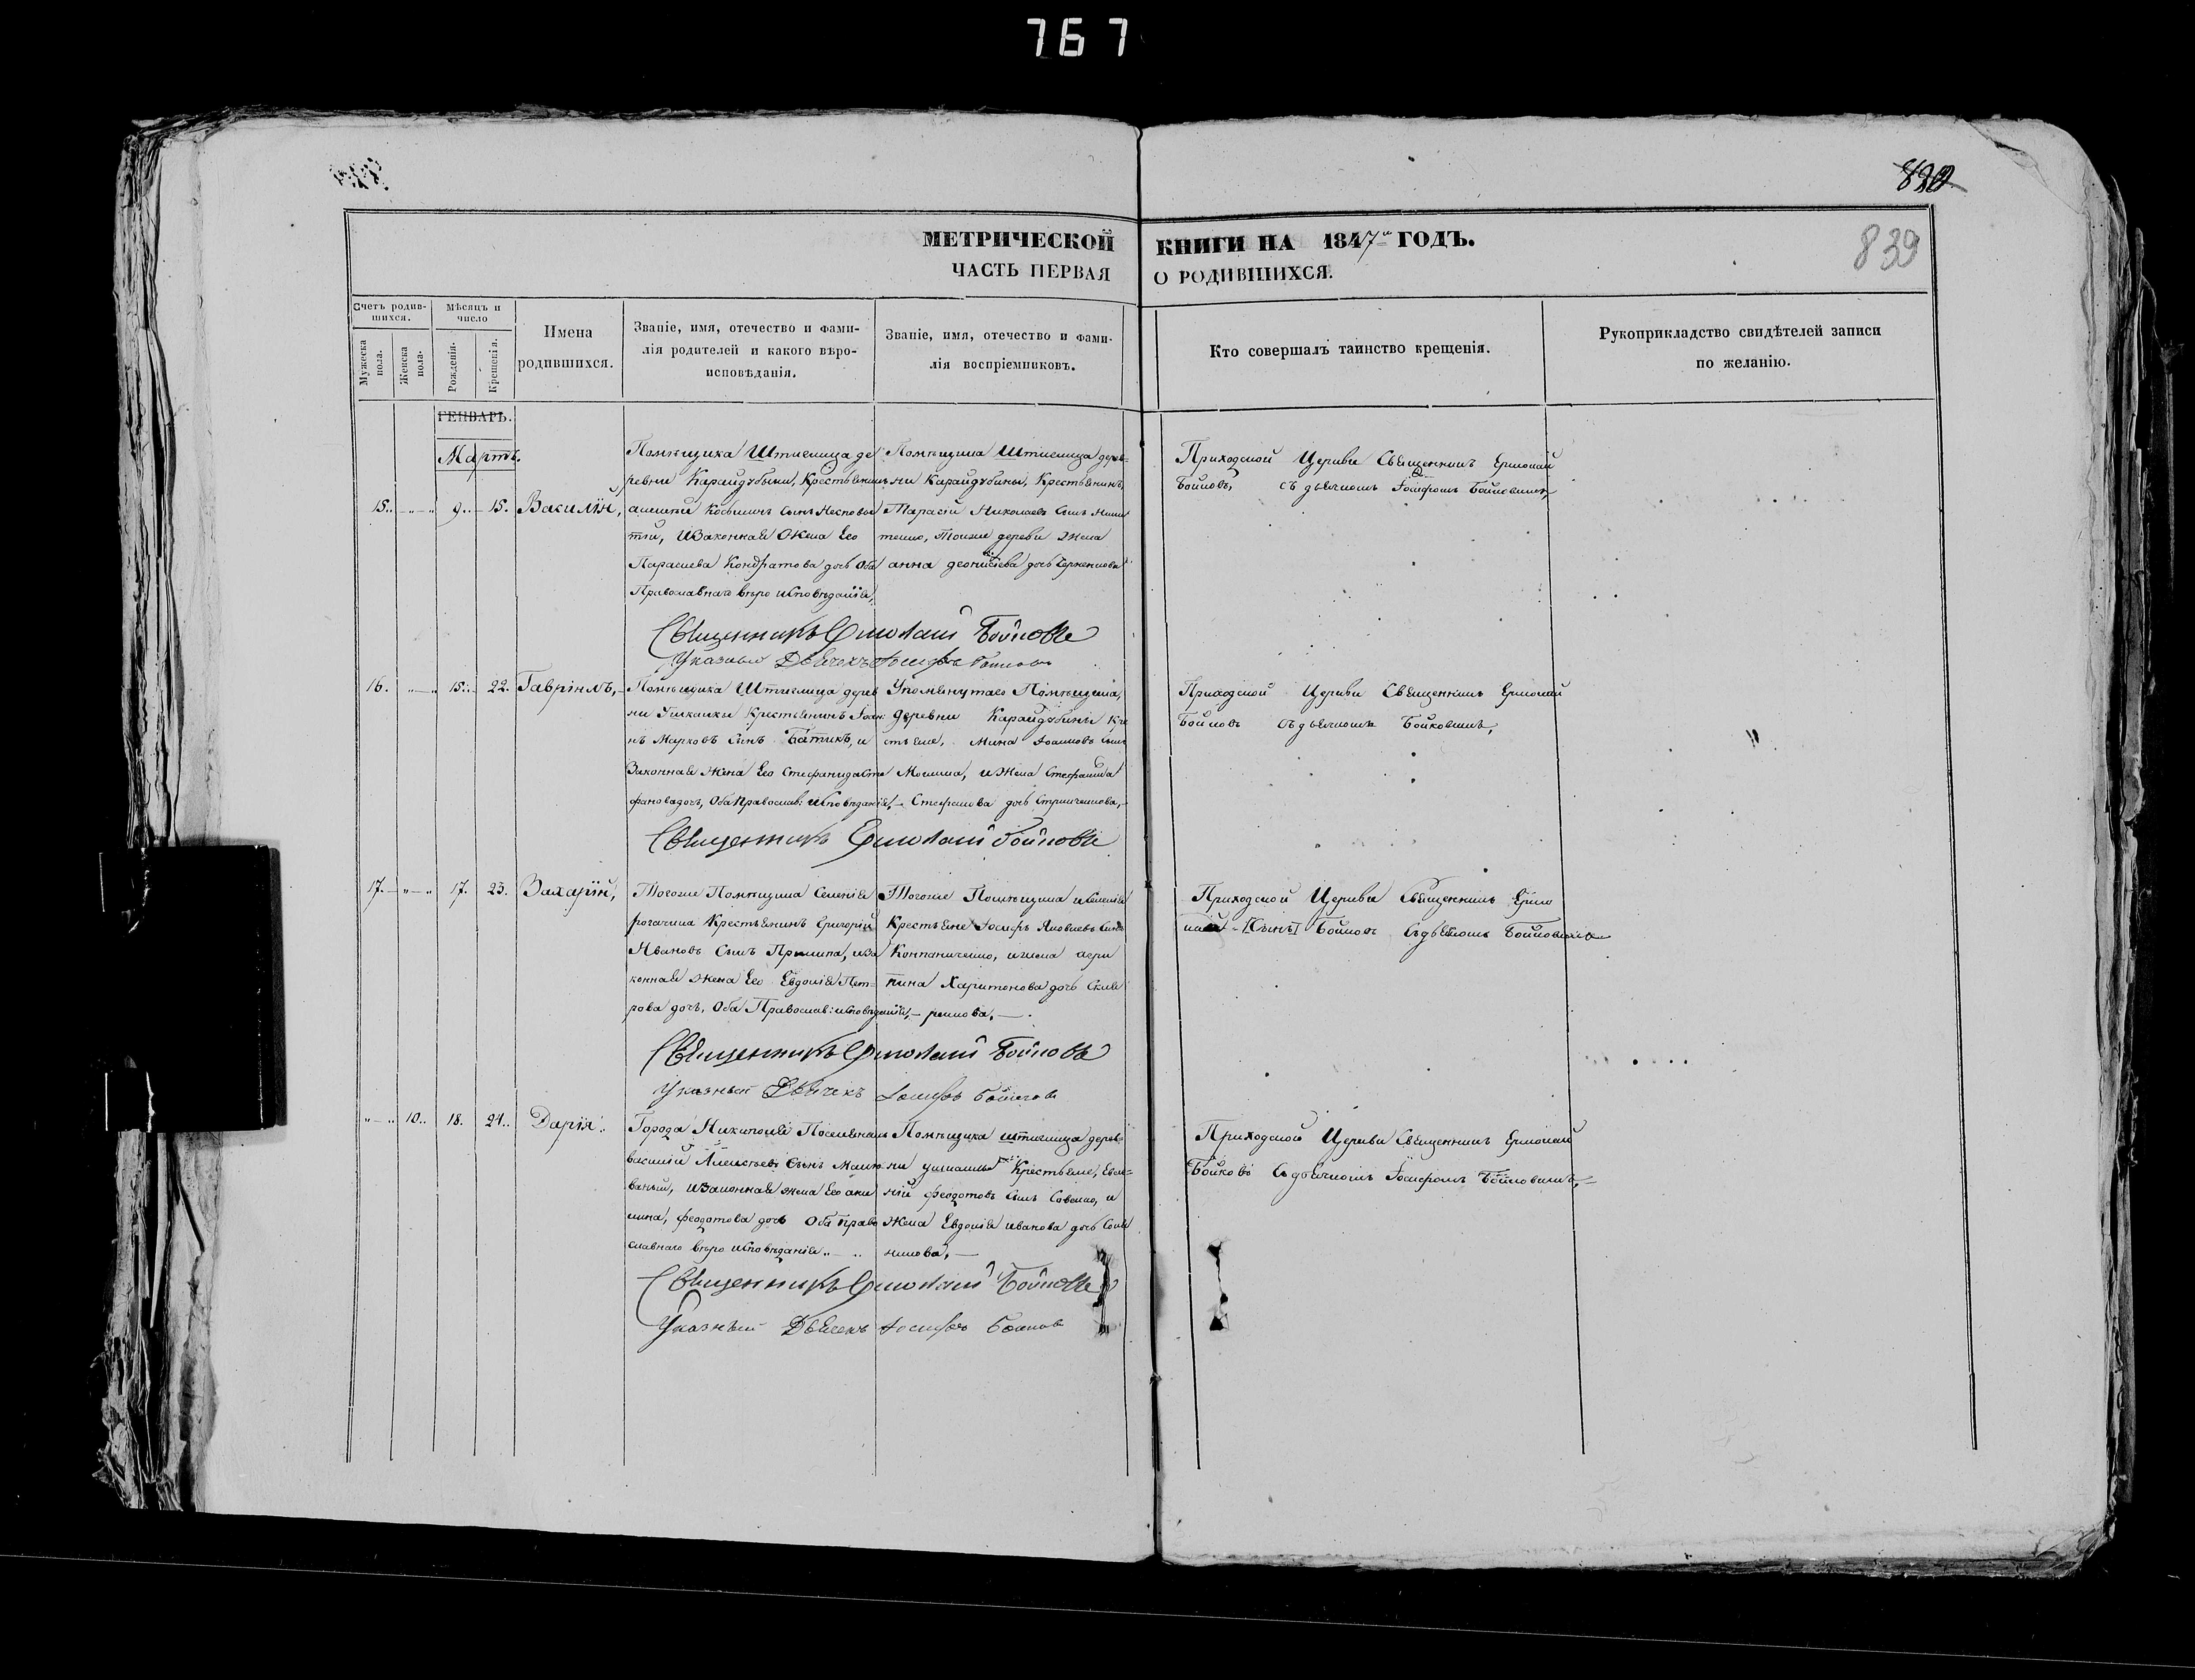 767
839
МЕТРИЧЕСКОЙ КНИГИ НА 1847й ГОДЪ.
ЧАСТЬ ПЕРВАЯ О РОДИВШИХСЯ.
Счетъ родив-
шихся.
Мужеска пола.
Женска пола.
Мѣсяцъ и
число
Рожденія.
Крещенія.
Имена
родившихся.
Званіе, имя, отечество и фами-
лія родителей и какого вѣро-
исповѣданія.
Званіе, имя, отечество и фами-
лія воспріемниковъ.
Кто совершалъ таинство крещенія.
Рукоприкладство свидѣтелей записи
по желанію.
ГЕНВАРЬ.
Мартъ.
15. 9. 15. Василій,
Помѣщика Штиглица де
ревни Карайдубыни, Крестьянинъ
Косминъ сынъ
тій, и Законная Жена Его
Параскева Кондратова дочь Оба
Православнаго вѣро исповѣданія,
Помѣщика Штиглица дерев-
ни Карайдубины, Крестьянинъ,
Тарасій Николаевъ Сынъ
тенко, Тоиже деревни Жена
анна дочь
Приходской Церкви Священникъ Ермолай
Бойковъ, съ дьячкомъ Іосифомъ Бойковимъ,
Священникъ Ермолай Бойковъ
Указный Дьячекъ Іосифъ Бойковъ
16. 15. 22. Гавріилъ,
Помѣщика Штиглица дерев
ни Ушкалки Крестьянинъ Іоан
нъ Марковъ Сынъ Батикъ, и
Законная Жена Его Стефанида Сте
фанова дочь, Оба Православ: исповѣданія,
Упомянутаго Помѣщика,
Деревни Карайдубины Кре
стьяне, Мина Іоанновъ Сынъ
и Жена Стефанида
Стефанова дочь
Приходской Церкви Священникъ Ермолай
Бойковъ съ дьячкомъ Бойковимъ,
Священникъ Ермолай Бойковъ
17. 17. 23. Захарій,
Тогоже Помѣщика Селенія
рогачика Крестьянинъ Григорій
Ивановъ Сынъ и За
конная Жена Его Евдокія Пет-
рова дочь, Оба Православ: исповѣданія,
Тогоже Помѣщика и Селенія
Крестьяне Іосифъ Яковлевъ Сынъ
Компаниченко, и жена агри
пина Харитонова дочь Скля
рикова.
Приходской Церкви Священникъ Ермо
лай [Сынъ] Бойковъ Съ дьячкомъ Бойковимъ
Священникъ Ермолай Бойковъ
Указный Дьячекъ Іосифъ Бойковъ
10. 18. 24. Дарія.
Города Никополя Поселянинъ
василій Алексѣевъ Сынъ
и Законная жена Его аки
лина, Феодотова дочь Оба Право
славнаго вѣро исповѣданія.
Помѣщика штиглица дерев-
ни ушкалки Крестьяне,
ній Феодотовъ Сынъ Савенко, и
Жена Евдокія иванова дочь
Приходской Церкви Священникъ Ермолай
Бойковъ Съ дьячкомъ Іосифомъ Бойковимъ,
Священникъ Ермолай Бойковъ
Указный Дьячекъ Іосифъ Бойковъ